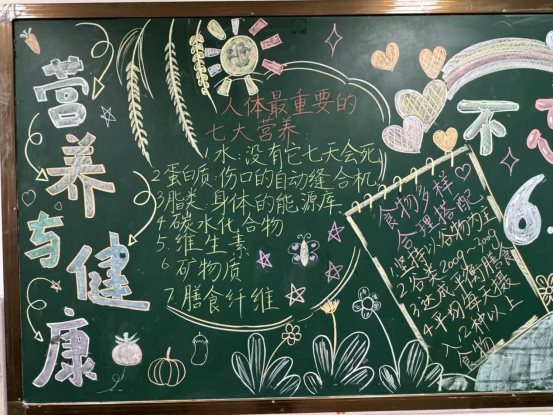 营养与健康
人体最重要的
七大营养:
1.水:没有它七天会死
2.蛋白质:伤口的自动缝合机
3.脂类:身体的能源库
4.碳水化合物
5.维生素
6.矿物质
7.膳食纤维
食物多样
合理搭配
1.坚持以谷物为主
2.谷类200g~300g
3.达成平衡膳食
4.平均每天摄
入12种以上
食物
不
6.